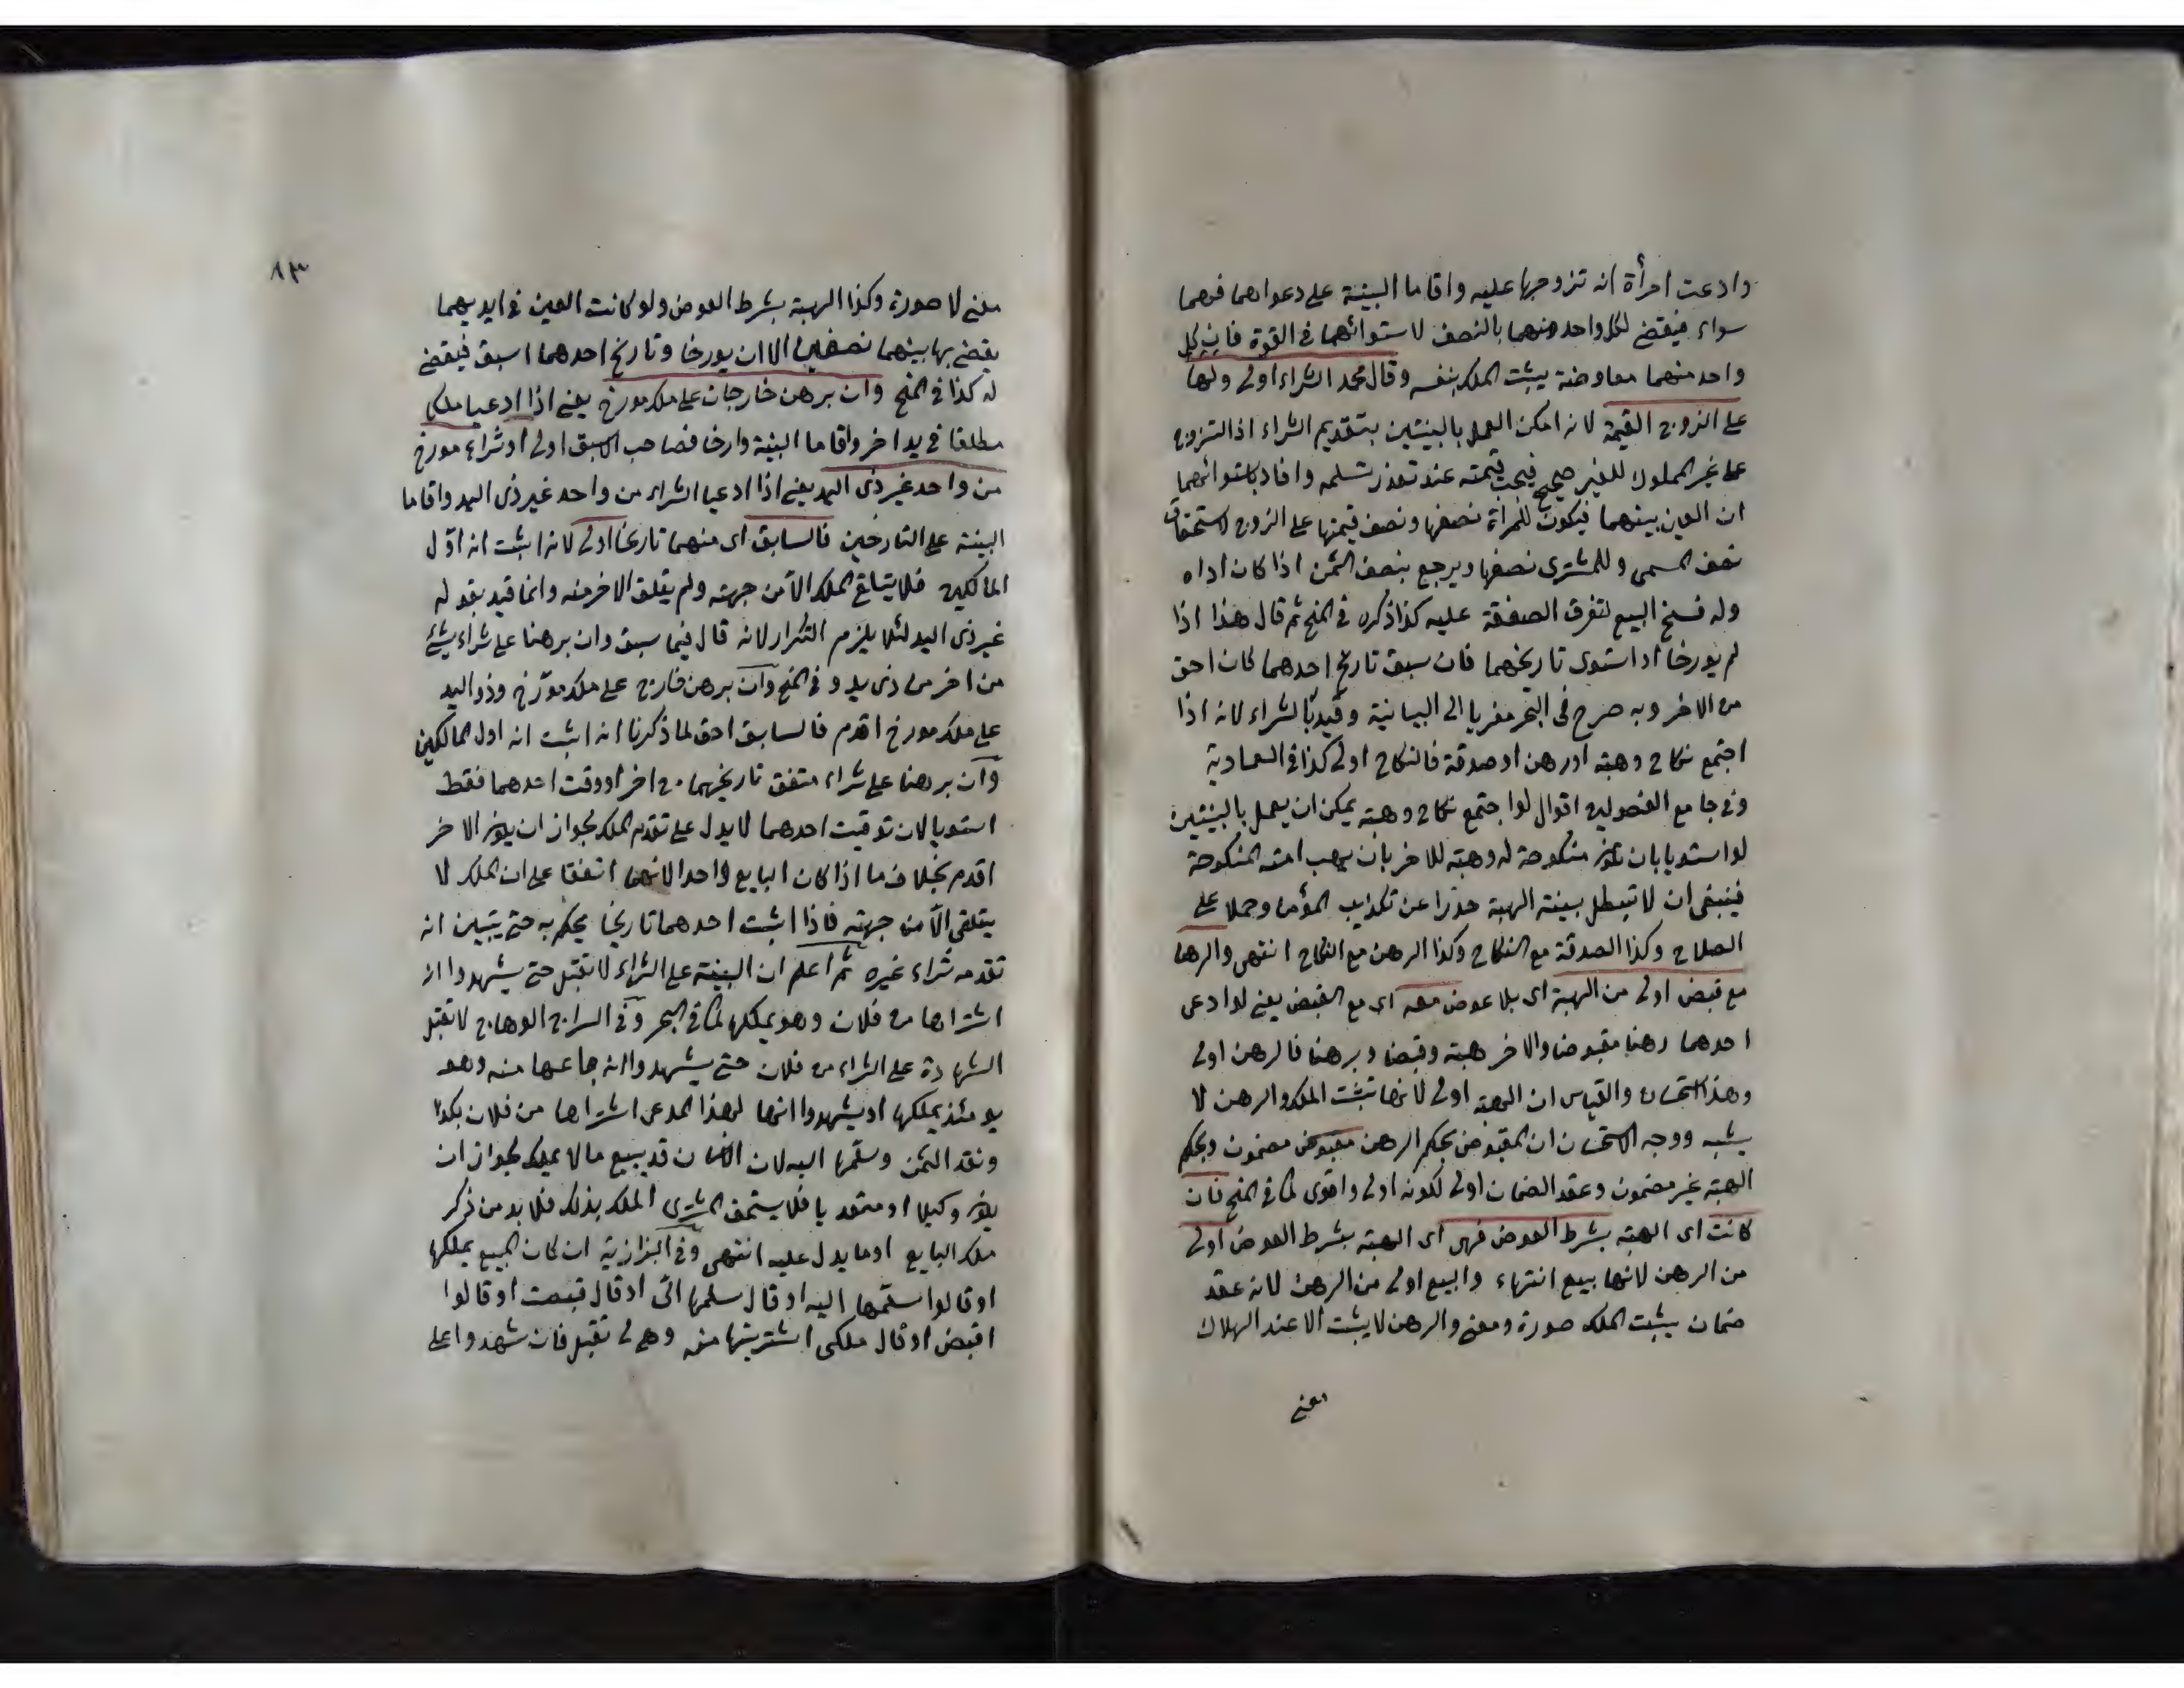 وادعت امرأة انه تزوجها عليه واقاما البينة على دعواهما فهما
سواء فيقضى لكل واحد منهما بالنصف لاستوائهما في القوة فان كل
واحد منهما معاوضة يثبت الملك بنفسه وقال محمد الشراء اولى ولها
على الزوج القيمة لانه امكن العمل بالبينتين بتقديم الشراء اذ التزوج
على غير المملوك للغير صحيح فيجب قيمته عند تعذر تسلمه وافاد باستوائهما
ان العين بينهما فيكون للمرأة نصفها ونصف قيمتها على الزوج لاستحقاق
نصف المسمى وللمشترى نصفها ويرجع بنصف الثمن اذا كان اداه
وله فسخ البيع لتفرق الصفقة عليه كذا ذكره في المنح ثم قال هذا اذا
لم يورخا أو استوى تاريخهما فان سبق تاريخ احدهما كان احق
من الاخر وبه صرح في البحر معزيا الى البيانية وقيد بالشراء لانه اذا
اجتمع نكاح وهبة اورهن او صدقة فالنكاح اولى كذا في العمادية
وفي جامع الفصولين اقوال لو اجتمع نكاح وهبة يمكن ان يعمل بالبينتين
لو استويا بان تكون منكوحة له وهبة للاخر بان يهب امته المنكوحة
فينبغى ان لا تبطل بينة الهبة حذرا عن تكذيب المؤمن وحملا على
الصلاح وكذا الصدقة مع النكاح وكذا الرهن مع النكاح انتهى والرهن
مع قبض اولى من الهبة اى بلا عوض معه اى مع القبض يعنى لو ادعى
احدهما رهنا مقبوضا والاخر هبة وقبضا وبرهنا فالرهن اولى
وهذا استحسان والقياس ان الهبة اولى لانها تثبت الملك والرهن لا
يثبته ووجه الاستحسان ان المقبوض بحكم الرهن مقبوض مضمون وبحكم
الهبة غير مضمون وعقد الضمان اولى لكونه اولى واقوى كما في المنح فان
كانت اى الهبة بشرط العوض فهى اى الهبة بشرط العوض اولى
من الرهن لانها بيع انتهاء والبيع اولى من الرهن لانه عقد
ضمان يثبت الملك صورة ومعنى والرهن لا يثبت الا عند الهلاك
معنى
٨٣
معنى لا صورة وكذا الهبة بشرط العوض ولو كانت العين في ايديهما
يقضى بها بينهما نصفين الا ان يورخا وتاريخ احدهما اسبق فيقضى
له كذا في المنح وان برهن خارجان على ملك مورخ يعنى اذا ادعيا ملكا
مطلقا في يد اخر واقاما البينة وارخا فصاحب الاسبق اولى او شراء مورخ
من واحد غير ذى اليد يعنى اذا ادعيا الشراء من واحد غير ذى اليد واقاما
البينة على التارخين فالسابق اى منهما تاريخا اولى لانه اثبت انه اوّل
المالكين فلا يتلقى الملك الّا من جهته ولم يتلق الاخر منه وانما قيد بقوله
غير ذى اليد لئلا يلزم التكرار لانه قال فيما سبق وان برهنا على شراء شئ
من اخر من ذى يد و في المنح وان برهن خارج على ملك مورخ وذو اليد
على ملك مورخ اقدم فالسابق احق لما ذكرنا انه اثبت انه اول المالكين
وان برهنا على شراء متفق تاريخهما من اخر او وقت احدهما فقط
استويا لان توقيت احدهما لا يدل على تقدم الملك لجواز ان يكون الاخر
اقدم بخلاف ما اذا كان البايع واحد الانهما اتفقا على ان الملك لا
يتلقى الّا من جهته فاذا اثبت احدهما تاريخا يحكم به حتى يتبين انه
تقدمه شراء غيره ثم اعلم ان البينة على الشراء لا تقبل حتى يشهدوا انه
اشتراها من فلان وهو يملكها كما في البحر وفي السراج الوهاج لا تقبل
الشهادة على الشراء من فلان حتى يشهدوا انه باعها منه وهو
يومئذ يملكها او يشهدوا انها لهذا المدعى اشتراها من فلان بكذا
ونقد الثمن وسلّمها اليه لان الانسان قد يبيع ما لا يملك لجواز ان
يكون وكيلا او متعديا فلا يستحق المشترى الملك بذلك فلا بد من ذكر
ملك البايع او ما يدل عليه انتهى وفي البزازية ان كان المبيع يملكها
او قالوا سلّمها اليه او قال سلمها الىّ او قال قبضت او قالوا
اقبض او قال ملكى اشتريتها منه وهى لى تقبل فان شهدوا على